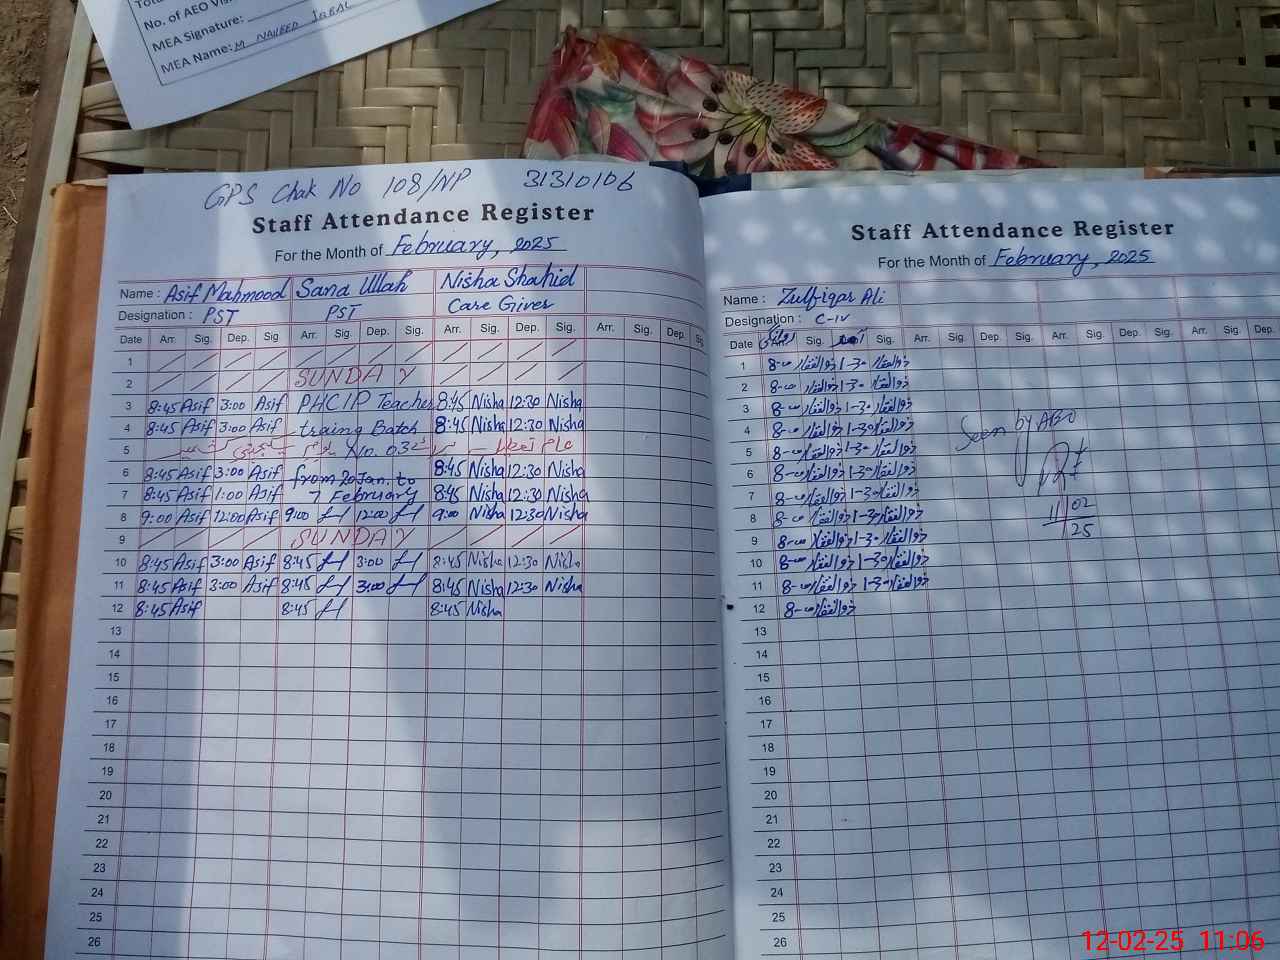 Tota
No. of AEO Vis
MEA Signature:
MEA Name: M NAVEED IQBAL
GPS Chak No 108/NP 31310106
Staff Attendance Register
For the Month of February, 2025
Name : Asif Mahmood Sana Ullah Nisha Shahid
Designation : PST PST Care Giver
Date Arr. Sig. Dep. Sig. Arr. Sig. Dep. Sig. Arr. Sig. Dep. Sig. Arr. Sig. Dep. Si
1
2 SUNDAY
3 8:45 Asif 3:00 Asif PHCIP Teacher 8:45 Nisha 12:30 Nisha
4 8:45 Asif 3:00 Asif traing Batch 8:45 Nisha 12:30 Nisha
5 No. 032 عام تعطیل
6 8:45 Asif 3:00 Asif from 20 Jan. to 8:45 Nisha 12:30 Nisha
7 8:45 Asif 1:00 Asif 7 February 8:45 Nisha 12:30 Nisha
8 9:00 Asif 12:00 Asif 9:00 12:00 9:00 Nisha 12:30 Nisha
9 SUNDAY
10 8:45 Asif 3:00 Asif 8:45 3:00 8:45 Nisha 12:30 Nisha
11 8:45 Asif 3:00 Asif 8:45 3:00 8:45 Nisha 12:30 Nisha
12 8:45 Asif 8:45 8:45 Nisha
13
14
15
16
17
18
19
20
21
22
23
24
25
26
Staff Attendance Register
For the Month of February, 2025
Name : Zulfiqar Ali
Designation : C-IV
Date Arr. Sig. آمد Sig. Arr. Sig. Dep. Sig. Arr. Sig. Dep. Sig. Arr. Sig. Dep.
1 8-00 ذوالفقار 1-30 ذوالفقار
2 8-00 ذوالفقار 1-30 ذوالفقار
3 8-00 ذوالفقار 1-30 ذوالفقار
4 8-00 ذوالفقار 1-30 ذوالفقار Seen by AEO
5 8-00 ذوالفقار 1-30 ذوالفقار
6 8-00 ذوالفقار 1-30 ذوالفقار
7 8-00 ذوالفقار 1-30 ذوالفقار
8 8-00 ذوالفقار 1-30 ذوالفقار 11/02
9 8-00 ذوالفقار 1-30 ذوالفقار 25
10 8-00 ذوالفقار 1-30 ذوالفقار
11 8-00 ذوالفقار 1-30 ذوالفقار
12 8-00 ذوالفقار
13
14
15
16
17
18
19
20
21
22
23
24
25
26
12-02-25 11:06